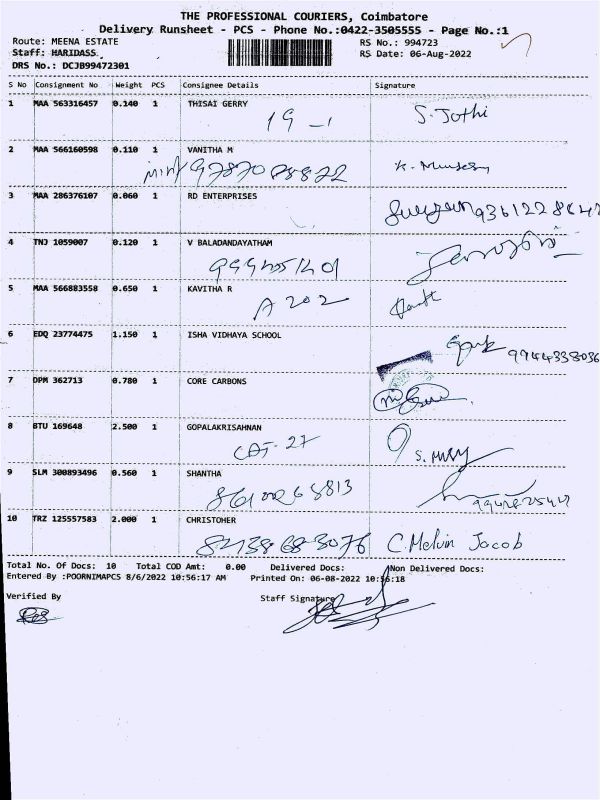 THE PROFESSIONAL COURIERS, Coimbatore
Delivery Runsheet - PCS - Phone No.:0422-3505555 - Page No.:1
Route: MEENA ESTATE RS No.: 994723
Staff: HARIDASS RS Date: 06-Aug-2022
DRS No.: DCJB99472301
S No Consignment No Weight PCS Consignee Details Signature
1 MAA 563316457 0.140 1 THISAI GERRY
19 S. Jothi
2 MAA 566160598 0.110 1 VANITHA M
3 MAA 286376107 0.060 1 RD ENTERPRISES
4 TNJ 1059007 0.120 1 V BALADANDAYATHAM
5 MAA 566883558 0.650 1 KAVITHA R
A 202
6 EDQ 23774475 1.150 1 ISHA VIDHAYA SCHOOL
9944338036
7 DPM 362713 0.780 1 CORE CARBONS
8 BTU 169648 2.500 1 GOPALAKRISAHNAN
9 SLM 300893496 0.560 1 SHANTHA
10 TRZ 125557583 2.000 1 CHRISTOHER
C Melvin Jacob
Total No. Of Docs: 10 Total COD Amt: 0.00 Delivered Docs: Non Delivered Docs:
Entered By :POORNIMAPCS 8/6/2022 10:56:17 AM Printed On: 06-08-2022 10:56:18
Verified By Staff Signature